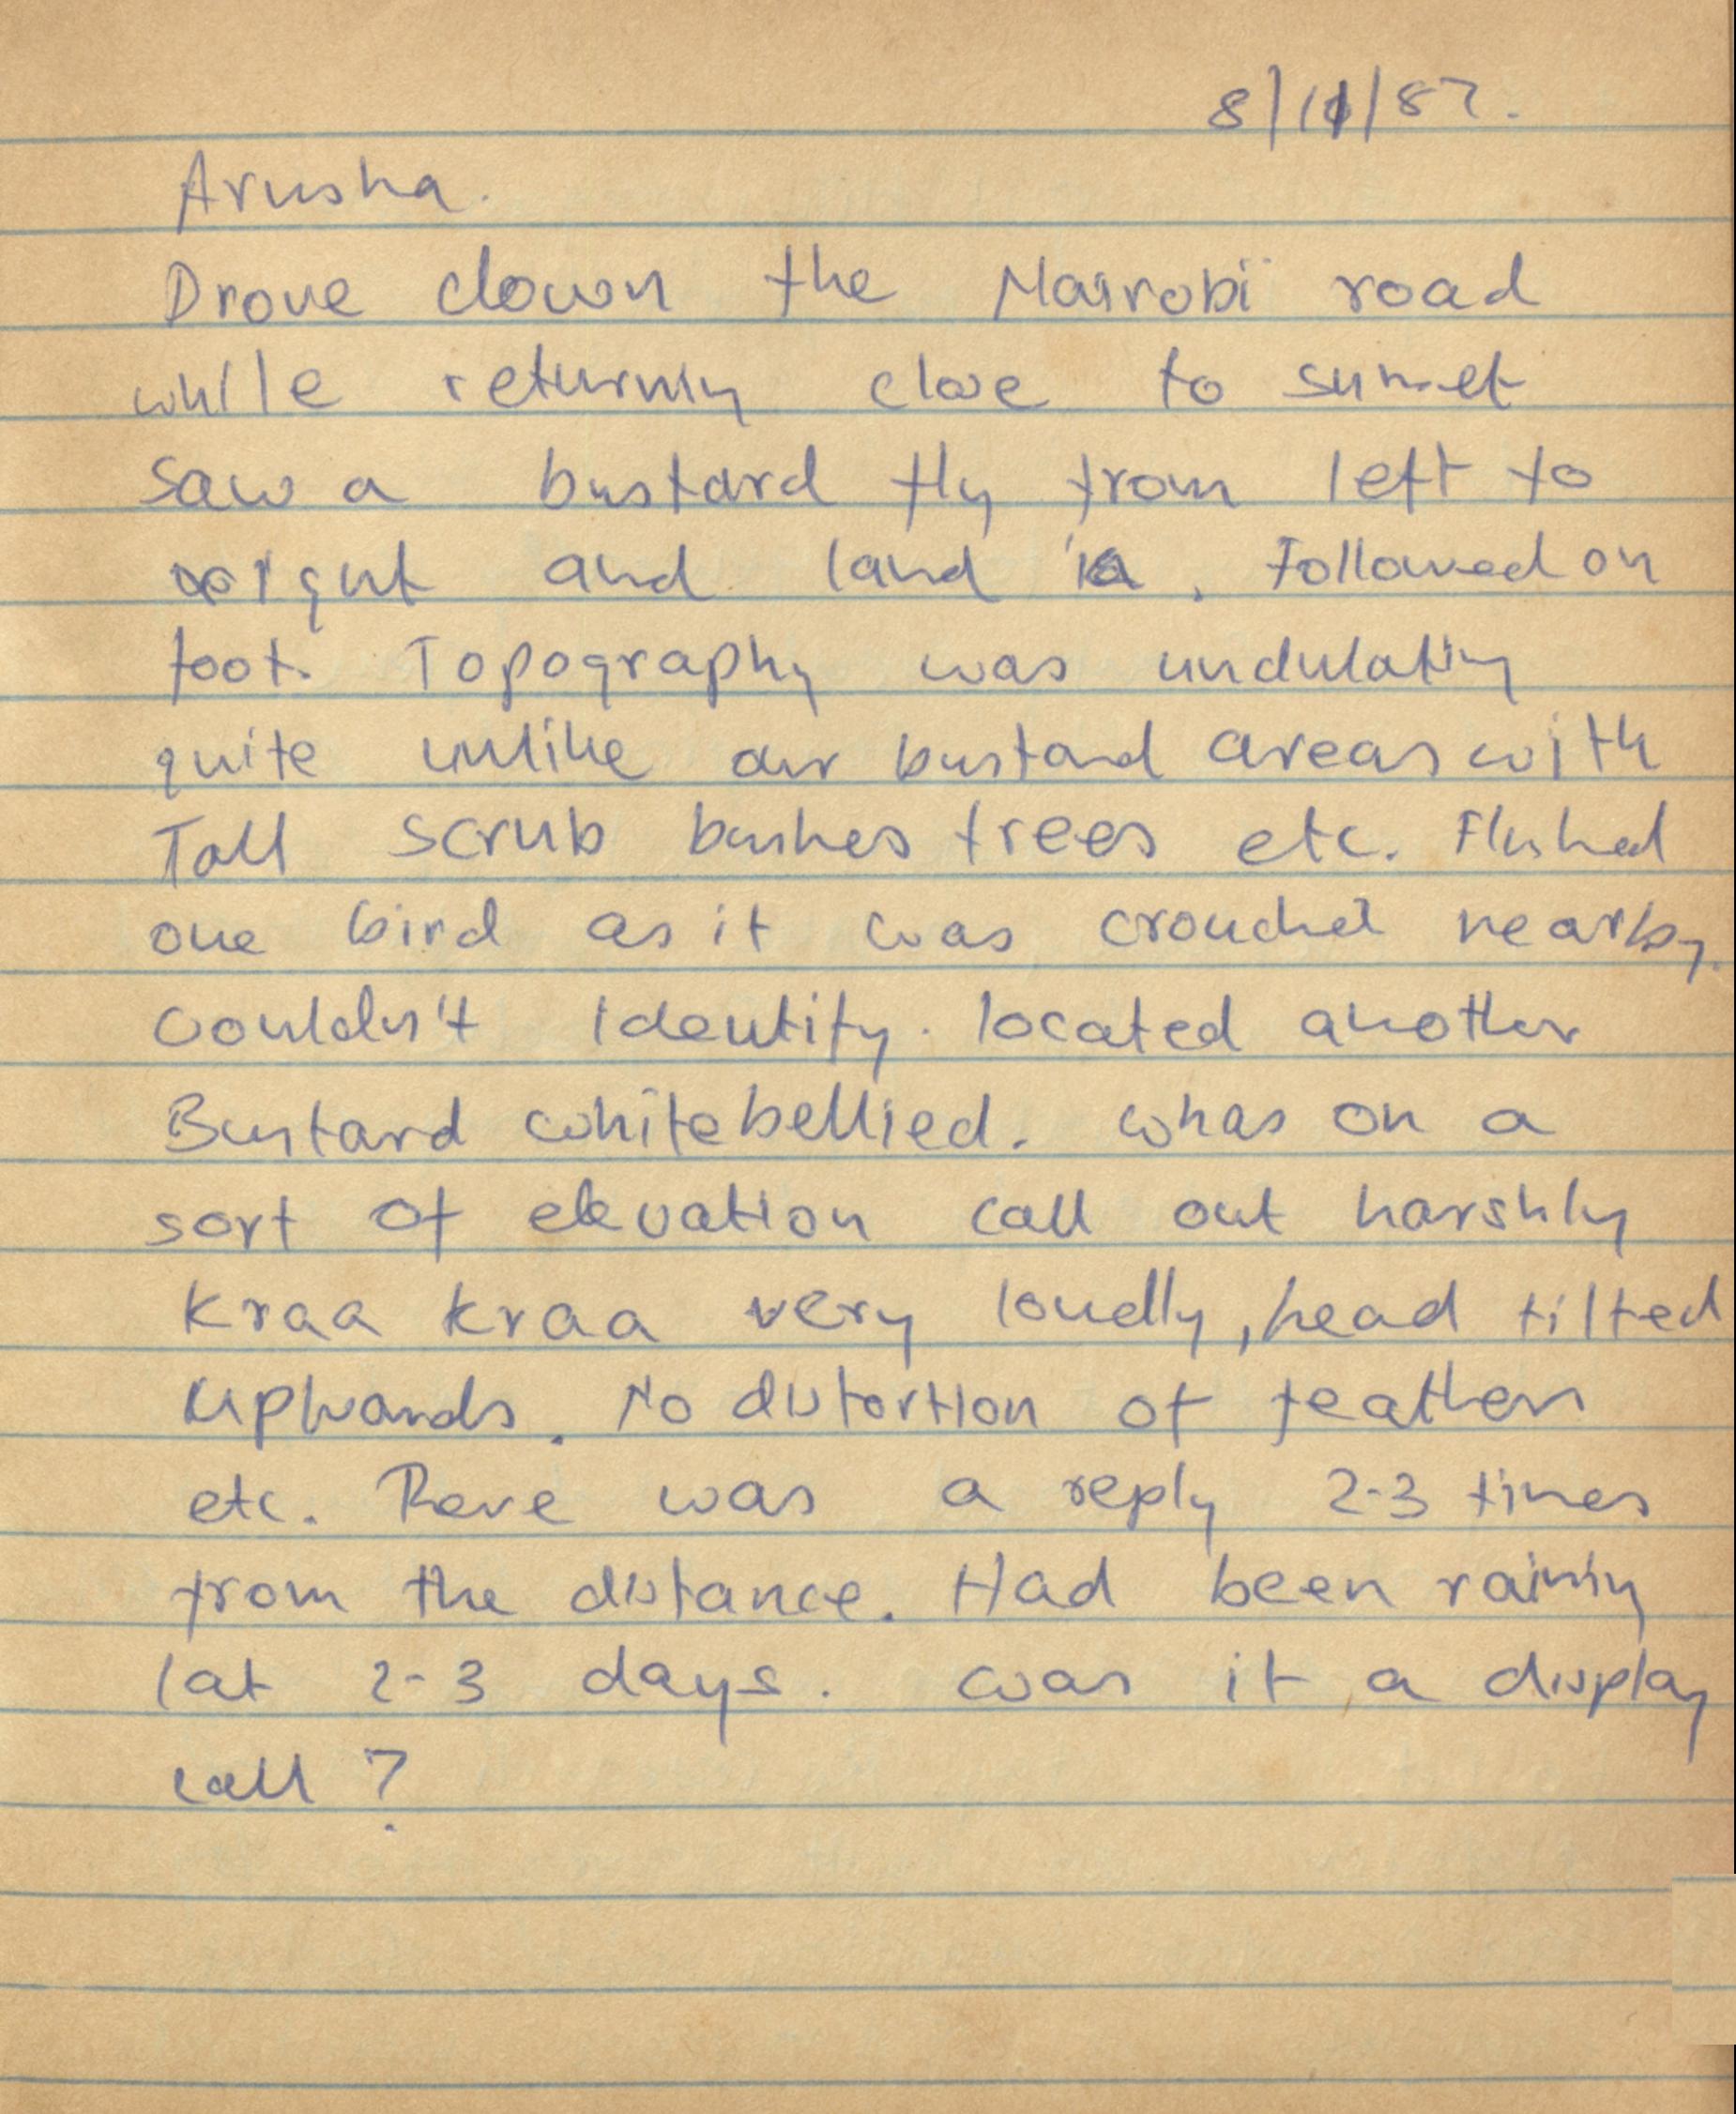 8/11/87.
Arusha.
Drove down the Nairobi road
while returning close to sunset
saw a bustard fly from left to
right and land . Followed on
foot. Topography was undulating
quite unlike our bustard areas with
Tall scrub bushes trees etc. Flushed
one bird as it was crouched nearby.
Couldn't identify. located another
Bustard whitebellied. whas on a
sort of elevation call out harshly
kraa kraa very loudly, head tilted
upwards. No distortion of feathers
etc. There was a reply 2-3 times
from the distance. Had been raining
lat 2-3 days. was it a display
call ?